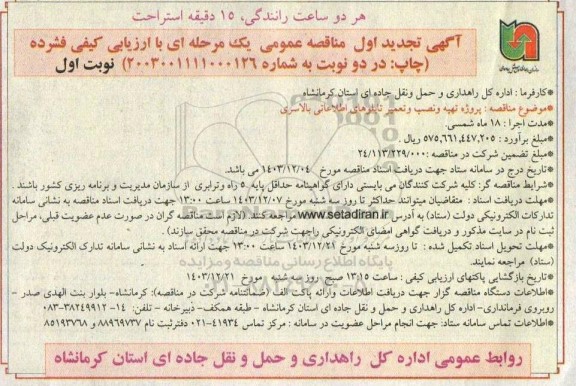 هر دو ساعت رانندگی، ۱۵ دقیقه استراحت
آگهی تجدید اول مناقصه عمومی یک مرحله ای با ارزیابی کیفی فشرده
(چاپ: در دو نوبت به شماره ۲۰۰۳۰۰۱۱۱۱۰۰۰۱۲۶) نوبت اول
*کارفرما : اداره کل راهداری و حمل ونقل جاده ای استان کرمانشاه
*موضوع مناقصه : پروژه تهیه ونصب وتعمیر تابلوهای اطلاعاتی بالاسری
*مدت اجرا : ۱۸ ماه شمسی.
*مبلغ برآورد : ۵۷۵,۶۶۱,۴۴۷,۲۰۵ ریال .
*مبلغ تضمین شرکت در مناقصه :۲۴/۱۱۳/۲۲۹/۰۰۰
*تاریخ درج در سامانه ستاد جهت دریافت اسناد مناقصه مورخ ۱۴۰۳/۱۲/۰۴ می باشد.
*شرایط مناقصه گر: کلیه شرکت کنندگان می بایستی دارای گواهینامه حداقل پایه ۵ راه وترابری از سازمان مدیریت و برنامه ریزی کشور باشند .
*مهلت دریافت اسناد : متقاضیان میتوانند حداکثر تا روز سه شنبه مورخ ۱۴۰۳/۱۲/۰۷ ساعت ۱۳:۰۰ جهت دریافت اسناد مناقصه به نشانی سامانه
تدارکات الکترونیکی دولت (ستاد) به آدرس www.setadiran.ir مراجعه کنند. (لازم است مناقصه گران در صورت عدم عضویت قبلی، مراحل
ثبت نام در سایت مذکور و دریافت گواهی امضای الکترونیکی راجهت شرکت در مناقصه محقق سازند).
*مهلت تحویل اسناد تکمیل شده : تا روزسه شنبه مورخ ۱۴۰۳/۱۲/۲۱ ساعت ۱۳:۰۰ جهت ارائه اسناد به نشانی سامانه تدارک الکترونیک دولت
(ستاد) مراجعه نمایند.
*تاریخ بازگشایی پاکتهای ارزیابی کیفی : ساعت ۱۳:۱۵ صبح روزسه شنبه مورخ ۱۴۰۳/۱۲/۲۱
*اطلاعات دستگاه مناقصه گزار جهت دریافت اطلاعات وارائه پاکت الف (ضمانتنامه شرکت در مناقصه): کرمانشاه- بلوار بنت الهدی صدر -
روبروی فرمانداری- اداره کل راهداری و حمل و نقل جاده ای استان کرمانشاه - طبقه همکف- دبیرخانه - تلفن: ۱۴- ۳۸۲۴۹۹۱۲-۰۸۳
*اطلاعات تماس سامانه ستاد: جهت انجام مراحل عضویت در سامانه : مرکز تماس ۴۱۹۳۴-۰۲۱ دفترثبت نام ۸۸۹۶۹۷۳۷ و ۸۵۱۹۳۷۶۸
روابط عمومی اداره کل راهداری و حمل و نقل جاده ای استان کرمانشاه